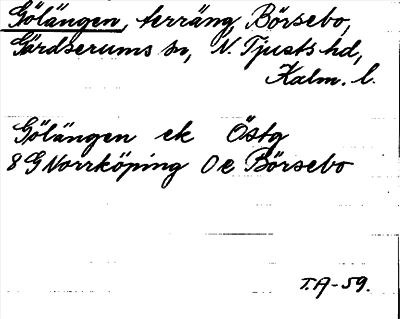 Gölängen, terräng Börsebo,
Gärdserums sn, N. Tjusts hd,
Kalm. l.
Gölängen ek Östg
8 G Norrköping 0 e Börsebo
T.A-59.